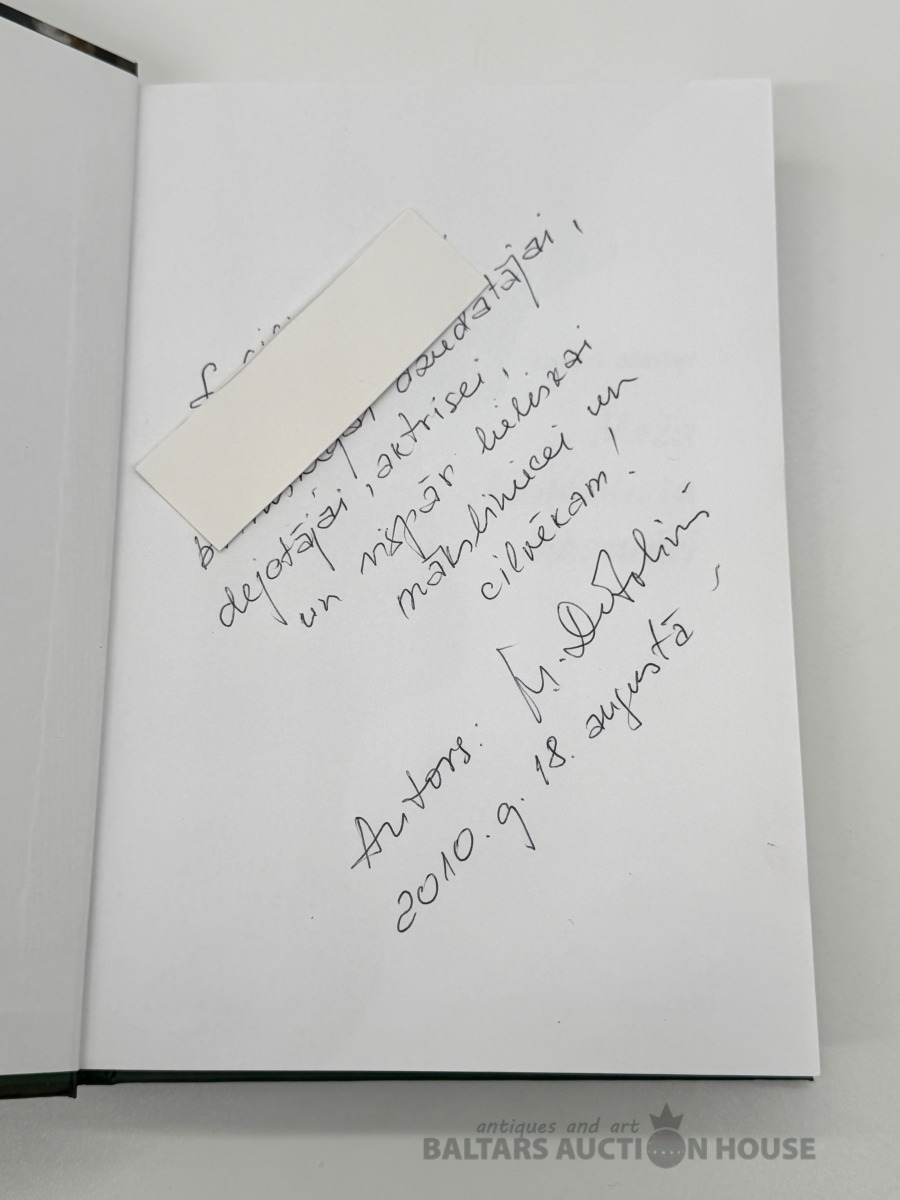 dziedātājai,
dejotājai, aktrisei,
un vispār lieliskai
māksliniecei un
cilvēkam!
Autors:
2010. g. 18. augustā
antiques and art
BALTARS AUCTION HOUSE